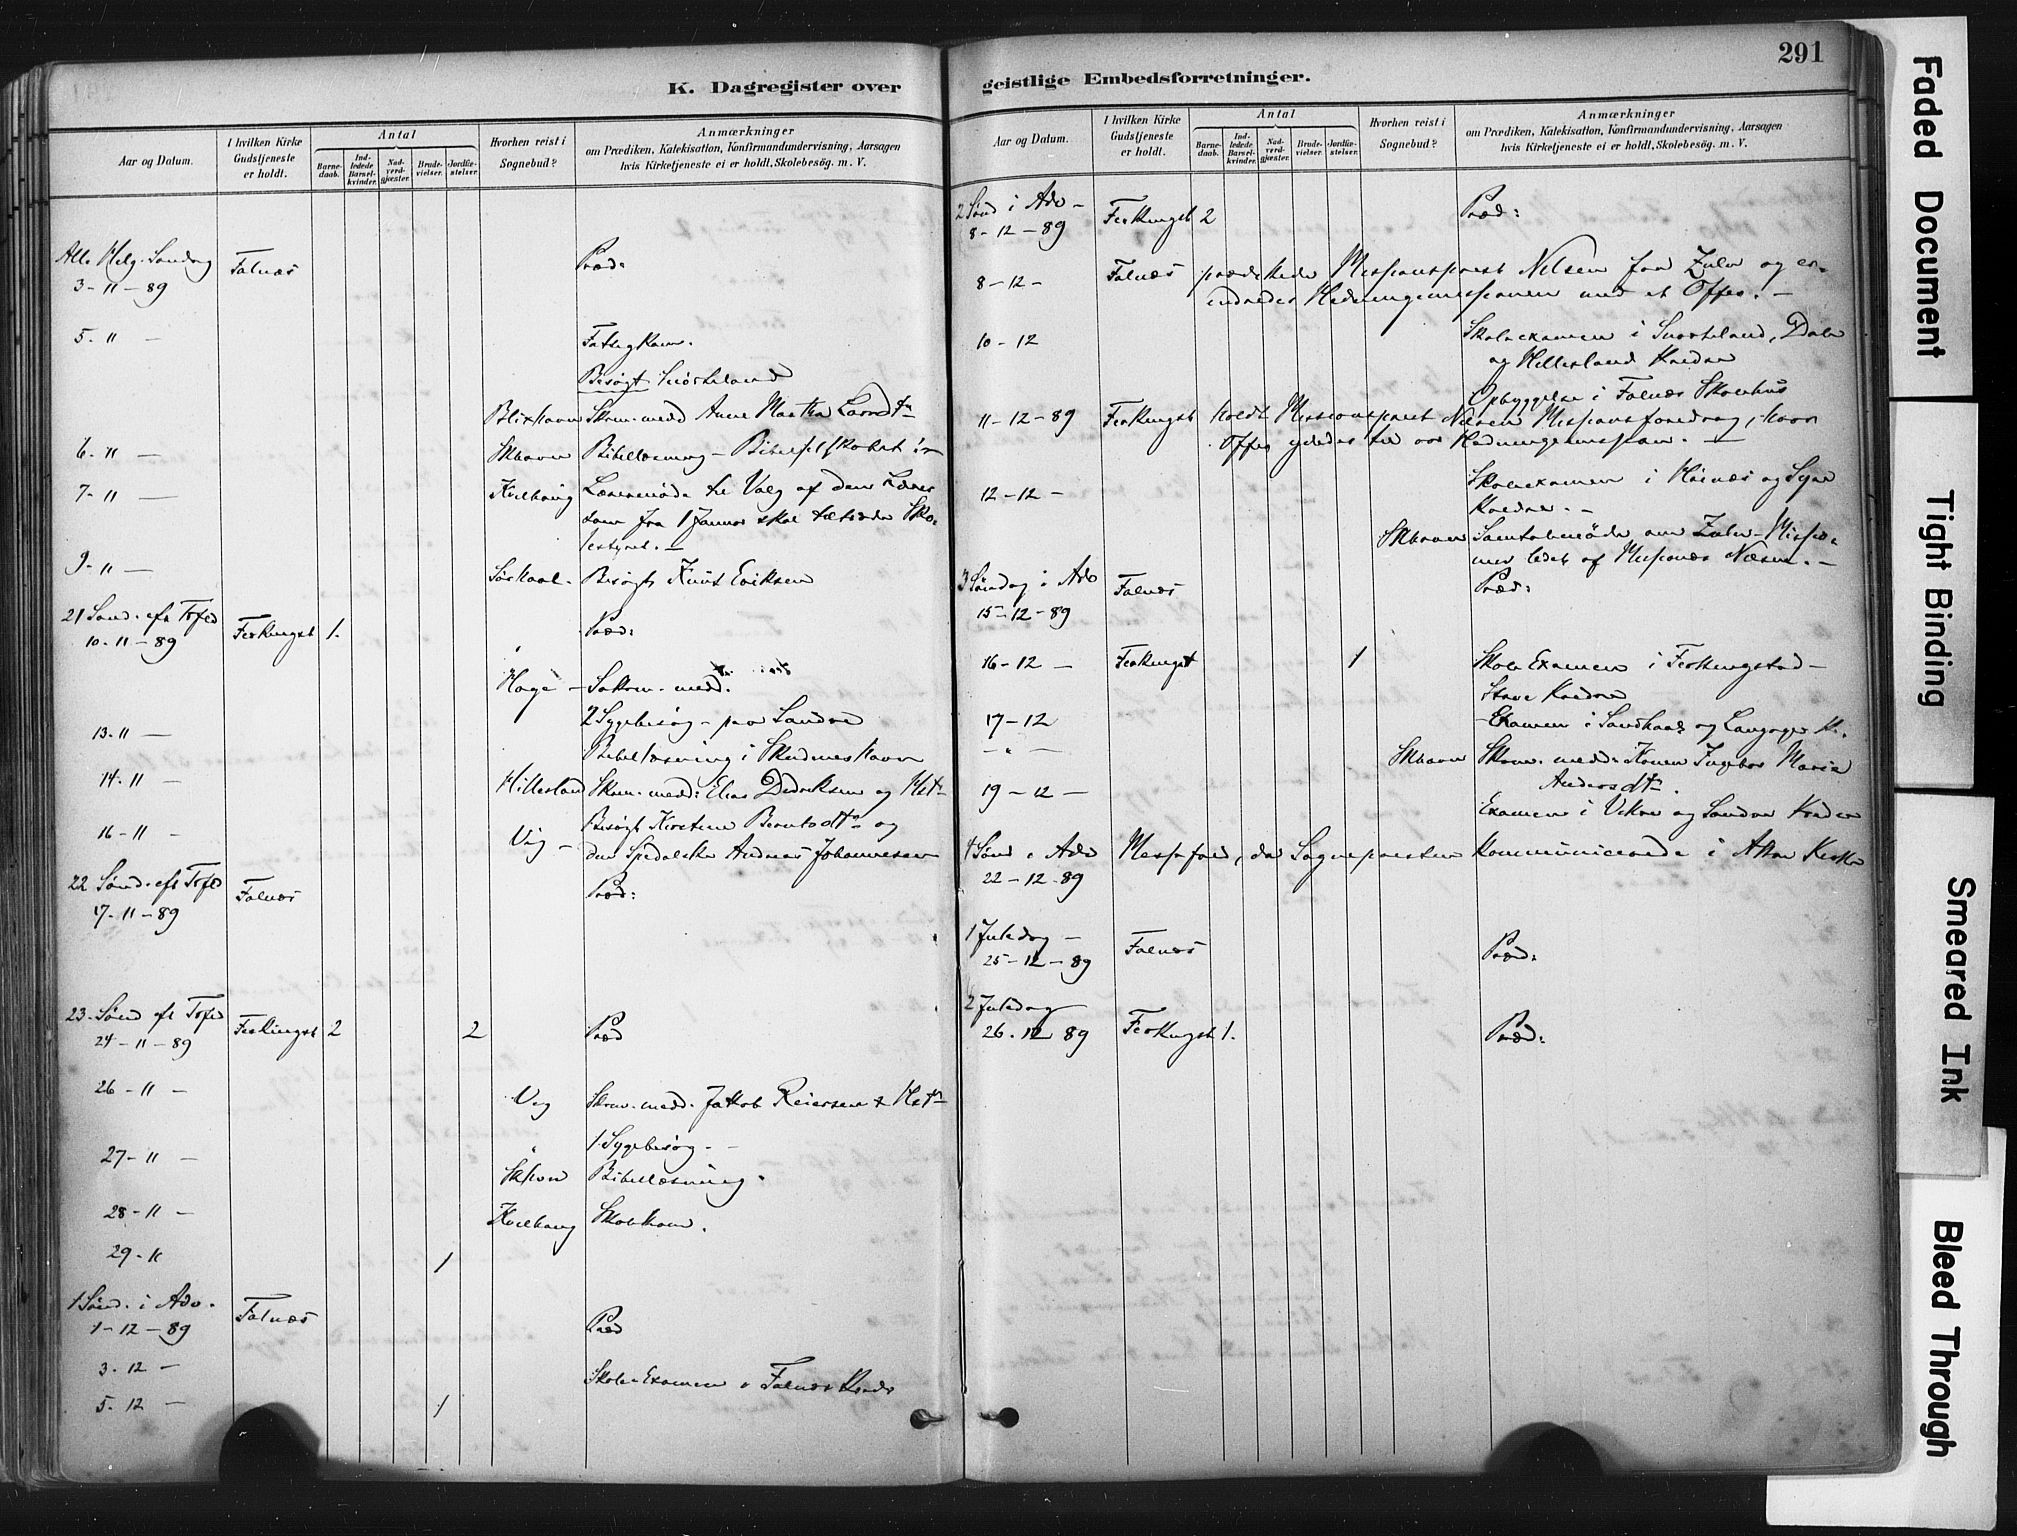 291
K. Dagregister over geistlige Embedsforretninger.
Aar og Datum.
I hvilken Kirke Gudstjeneste er holdt.
Antal
Barnedaab.
Indledede Barselkvinder.
Nadverdgjæster.
Brudevielser.
Jordfæstelser.
Hvorhen reist i Sognebud?
Anmærkninger
om Prædiken, Katekisation, Konfirmandundervisning, Aarsagen
hvis Kirketjeneste ei er holdt, Skolebesög. m. V.
Alle Helg. Sondag Falnæs Præd:
3-11-89
5-11 - Fattigkom.
Besøgt
Skom. medd Anne Martha
6-11 - Skhavn Bibellæsning -
7-11 - Lærermöde til Valg af den Lærer
som fra 1 Januar skal tiltræde Sko-
lestyret. -
9-11 - Besøgt Knut Eriksen
21 Sønd. eft Tfd Ferkingst 1. Præd:
10-11-89
Hage - medd.
2 Sygebesøg - paa Sandve
13-11 - Bibellæsning i Skudneshavn
14-11 - Hillesland Skom. medd: Elias Dedriksen og Hst
16-11 - Vig - Besøgt Kirstine Berntsdtr og
den Spedalske Andreas Johannesen
22 Sønd. eft Tfd Falnæs Præd:
17-11-89
23. Sønd eft Tfd Ferkingst 2 2 Præd
24-11-89
26-11 - Vig Skom. medd. Jakob Reiersen & Hst
1 Sygebesøg -
27-11 - Skhvn Bibellæsning.
28-11 - Skolekom.
29-11 1
1 Sønd. i Adv. Falnæs Præd
1-12-89
3-12 - Skole-Examen i Falnæs Kreds
5-12 - 1
Aar og Datum.
I hvilken Kirke Gudstjeneste er holdt.
Antal
Barnedaab.
Indledede Barselkvinder.
Nadverdgjæster.
Brudevielser.
Jordfæstelser.
Hvorhen reist i Sognebud?
Anmærkninger
om Prædiken, Katekisation, Konfirmandundervisning, Aarsagen
hvis Kirketjeneste ei er holdt, Skolebesög. m. V.
2 Sønd i Adv - Ferkingst 2 Præd:
8-12-89
8-12- Falnæs prædikede Missionsprest Nilsen fra Zulu og er-
indredes Hedningemissionen med et Offer. -
10-12 Skoleexamen i Snorteland, Dale
og Hillesland Kredse
Opbyggelse i Falnæs Skolehus
11-12-89 Ferkingst holdt Missionsprest Nilsen Missionsforedrag, hvor
Offer ydedes til vor Hedningemission. -
12-12- Skoleexamen i og Syre
Kredse. -
Skhavn Samtalemöde om Zulu-Missio-
nen ledet af Nilsen. -
3 Søndag i Adv Falnæs Præd:
15-12-89
16-12 - Ferkingst 1 Skole Examen i Ferkingstad -
Stave Kredse
17-12 - Examen i Sandhaal og Langager K.
-"- Skhavn Skom. medd: Konen Ingebor Maria
Andersdtr.
19-12- Examen i Vikre og Sandve Kredse
4 Sønd i Adv Messefald, da Sognepresten kommunicerede i Kirke
22-12-89
1 Juledag - Falnæs Præd:
25-12-89
2 Juledag
26-12 89 Ferkingst 1. Præd:
Faded Document
Tight Binding
Smeared Ink
Bleed Through